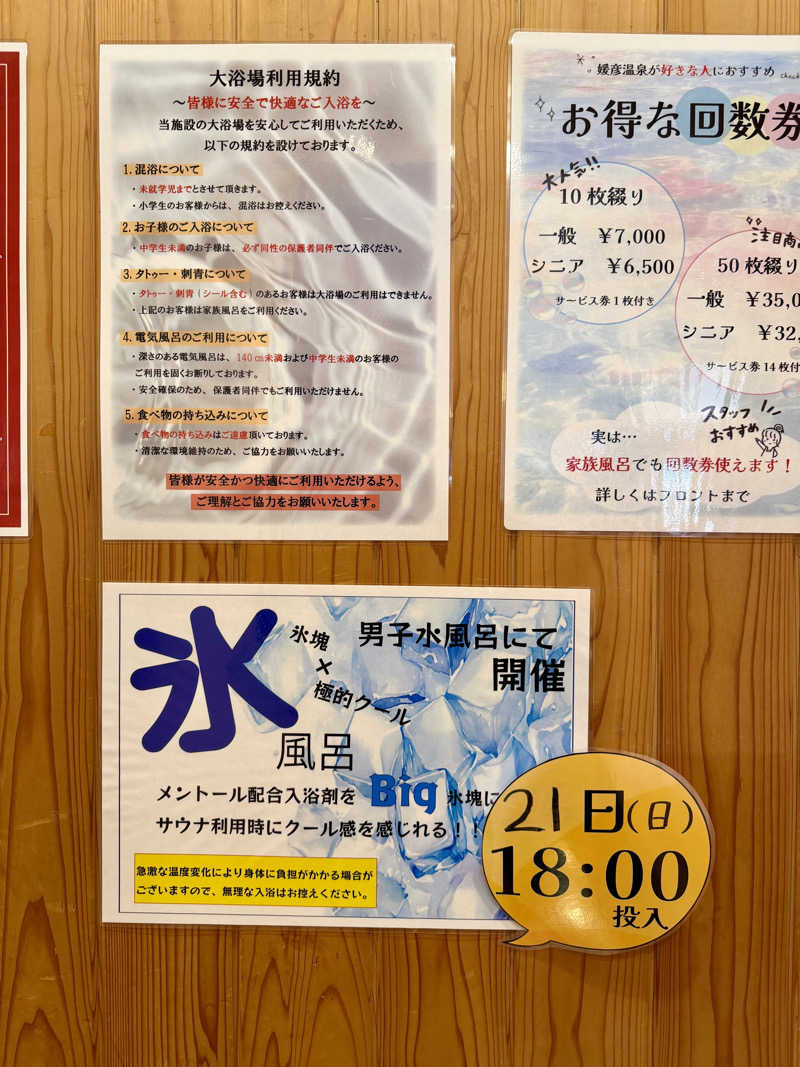 大浴場利用規約
～皆様に安全で快適なご入浴を～
当施設の大浴場を安心してご利用いただくため、
以下の規約を設けております。
1. 混浴について
・未就学児までとさせて頂きます。
・小学生のお客様からは、混浴はお控えください。
2. お子様のご入浴について
・中学生未満のお子様は、必ず同性の保護者同伴でご入浴ください。
3. タトゥー・刺青について
・タトゥー・刺青（シール含む）のあるお客様は大浴場のご利用はできません。
・上記のお客様は家族風呂をご利用ください。
4. 電気風呂のご利用について
・深さのある電気風呂は、140㎝未満および中学生未満のお客様の
ご利用を固くお断りしております。
・安全確保のため、保護者同伴でもご利用いただけません。
5. 食べ物の持ち込みについて
・食べ物の持ち込みはご遠慮頂いております。
・清潔な環境維持のため、ご協力をお願いいたします。
皆様が安全かつ快適にご利用いただけるよう、
ご理解とご協力をお願いいたします。
媛彦温泉が好きな人におすすめ
check
お得な回数券
大人気!!
10枚綴り
一般 ￥7,000
シニア ￥6,500
サービス券1枚付き
注目商
50枚綴り
一般 ￥35,0
シニア ￥32,
サービス券14枚付
スタッフ
おすすめ
実は…
家族風呂でも回数券使えます！
詳しくはフロントまで
氷
風呂
氷塊
×
極的クール
男子水風呂にて
開催
メントール配合入浴剤を Big 氷塊に
サウナ利用時にクール感を感じれる！！
急激な温度変化により身体に負担がかかる場合が
ございますので、無理な入浴はお控えください。
21日(日)
18:00
投入